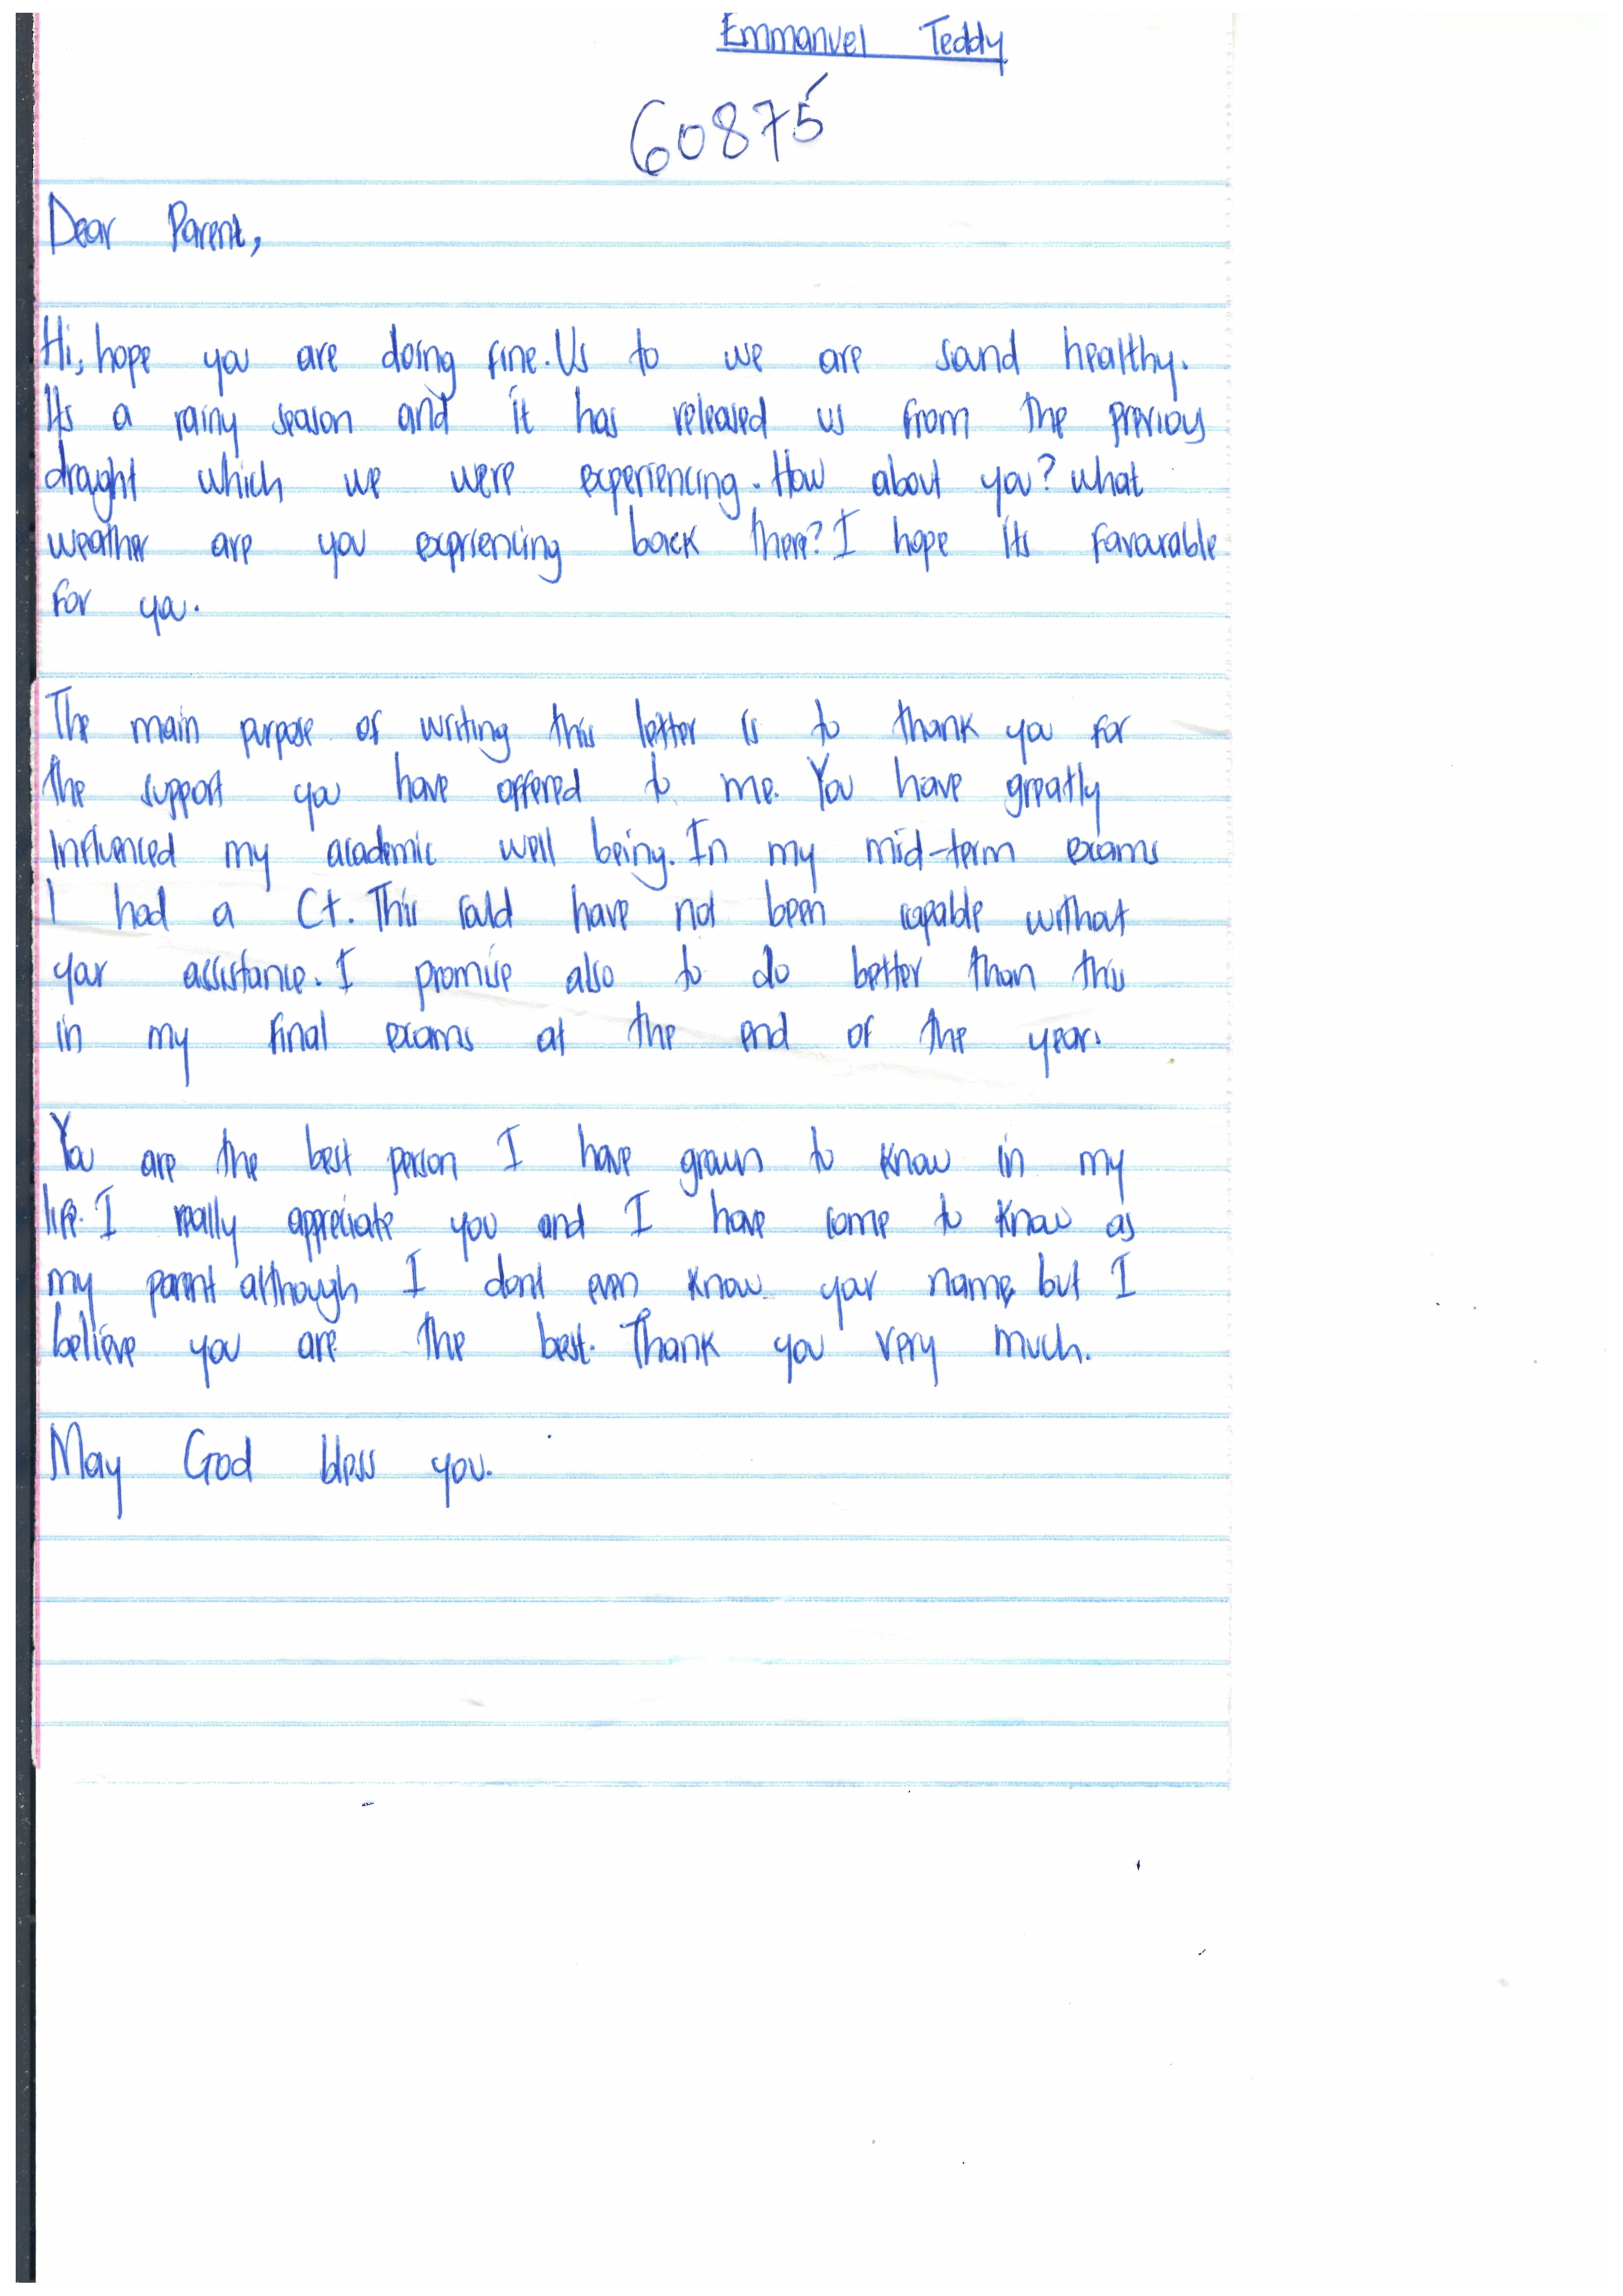 Emmanuel Teddy
60875
Dear Parent,
Hi, hope you are doing fine. Us to we are sound healthy.
Its a rainy season and it has released us from the previous
drought which we were experiencing. How about you? what
weather are you expriencing back there? I hope its favourable
for you.
The main purpose of writing this letter is to thank you for
the support you have offered to me. You have greatly
Influenced my academic well being. In my mid-term exams
I had a C+. This could have not been capable without
your assistance. I promise also to do better than this
in my final exams at the end of the year.
You are the best person I have grown to know in my
life. I really appreciate you and I have come to know as
my parent although I dont even know your name but I
believe you are the best. Thank you very much.
May God bless you.